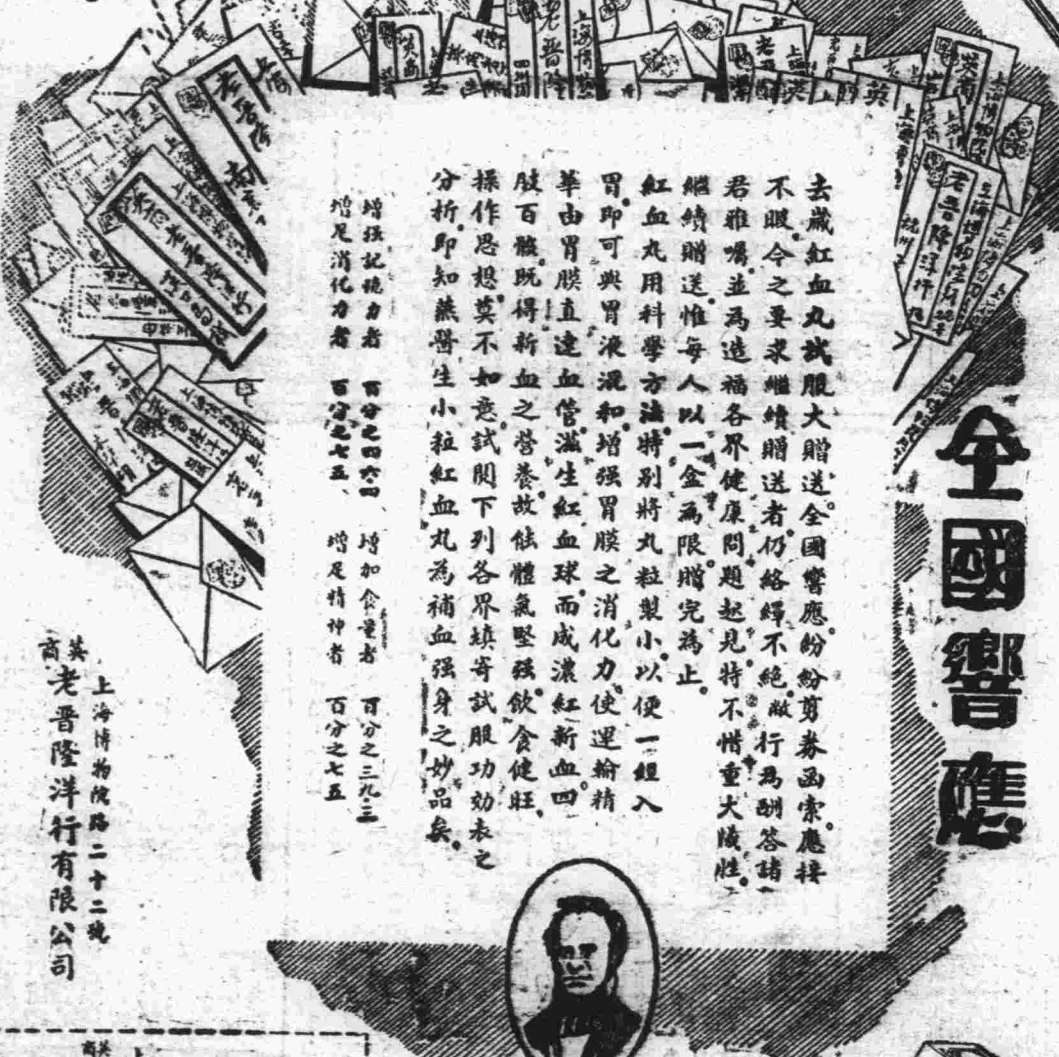 全國響應
去歲紅血丸試服大贈送。全國響應。紛紛剪券函索。應接
不暇。今之要求繼續贈送者。仍絡繹不絕。敝行為酬答諸
君雅囑。並為造福各界健康問題起見。特不惜重大犧牲。
繼續贈送。惟每人以一盒為限。贈完為止。
紅血丸用科學方法。特別將丸粒製小。以便一經入
胃。即可與胃液混和。增强胃膜之消化力。使運輸精
華由胃膜直達血管。滋生紅血球。而成濃紅新血。四
肢百骸。既得新血之營養。故能體氣堅强。飲食健旺。
操作思想。莫不如意。試閱下列各界填寄試服功効表之
分析。即知燕醫生小粒紅血丸為補血强身之妙品矣。
增强記憶力者 百分之四六·四 增加食量者 百分之三九·三
增足消化力者 百分之七五、 增足精神者 百分之七五
上海博物院路二十二號
英商老晋隆洋行有限公司